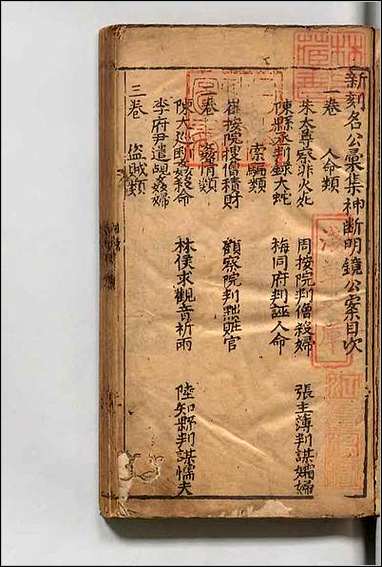 新刻名公彙集神断明鏡公案目次
一卷　人命類
朱太尊察非火死　周按院判僧殺婦　張主薄判謀孀婦
陳縣丞判錄大蛇　梅同府判誣人命
索騙類
崔按院搜僧積財　顧察院判黜賍官
二卷　姦情類
陳大巡斷姦殺命　林侯求觀音祈雨　陸知縣判謀懦夫
李府尹遣覘姦婦
三卷　盜賊類